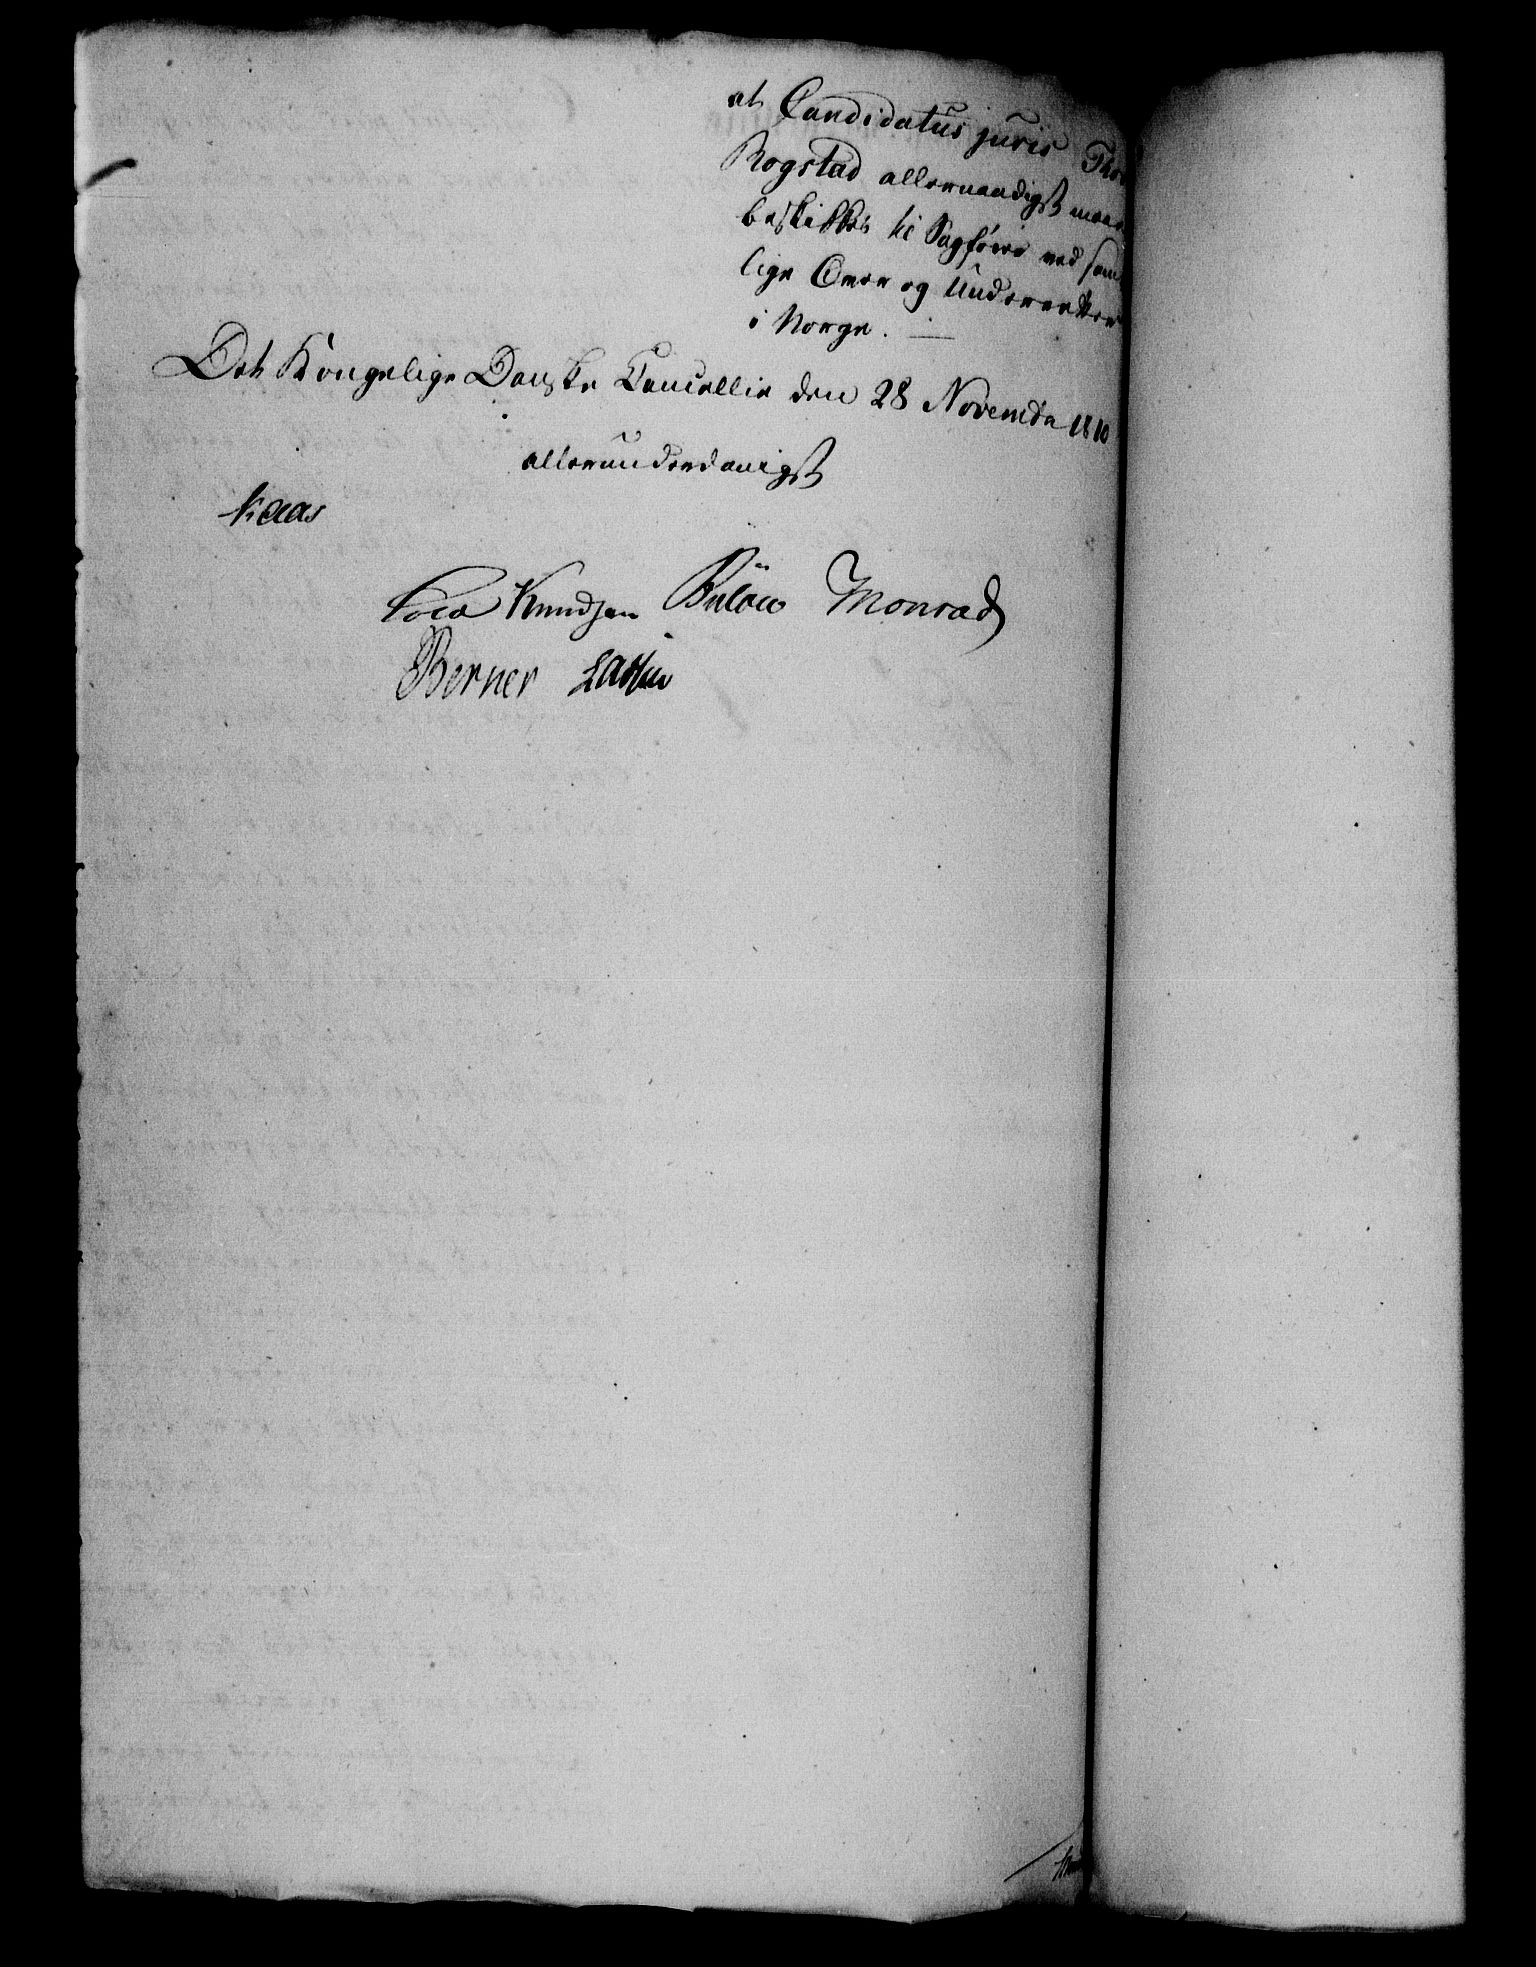 at Candidatus juris
Rogstad allernaadigst maae
beskikkes til Sagfører ved sam
lige Over og Underretter
i Norge. —
Det Kongelige Danske Cancellie den 28 Novembr 1810
allerunderdanigst
Kaas
Cold Knudsen Bülow Monrad
Berner Lassen